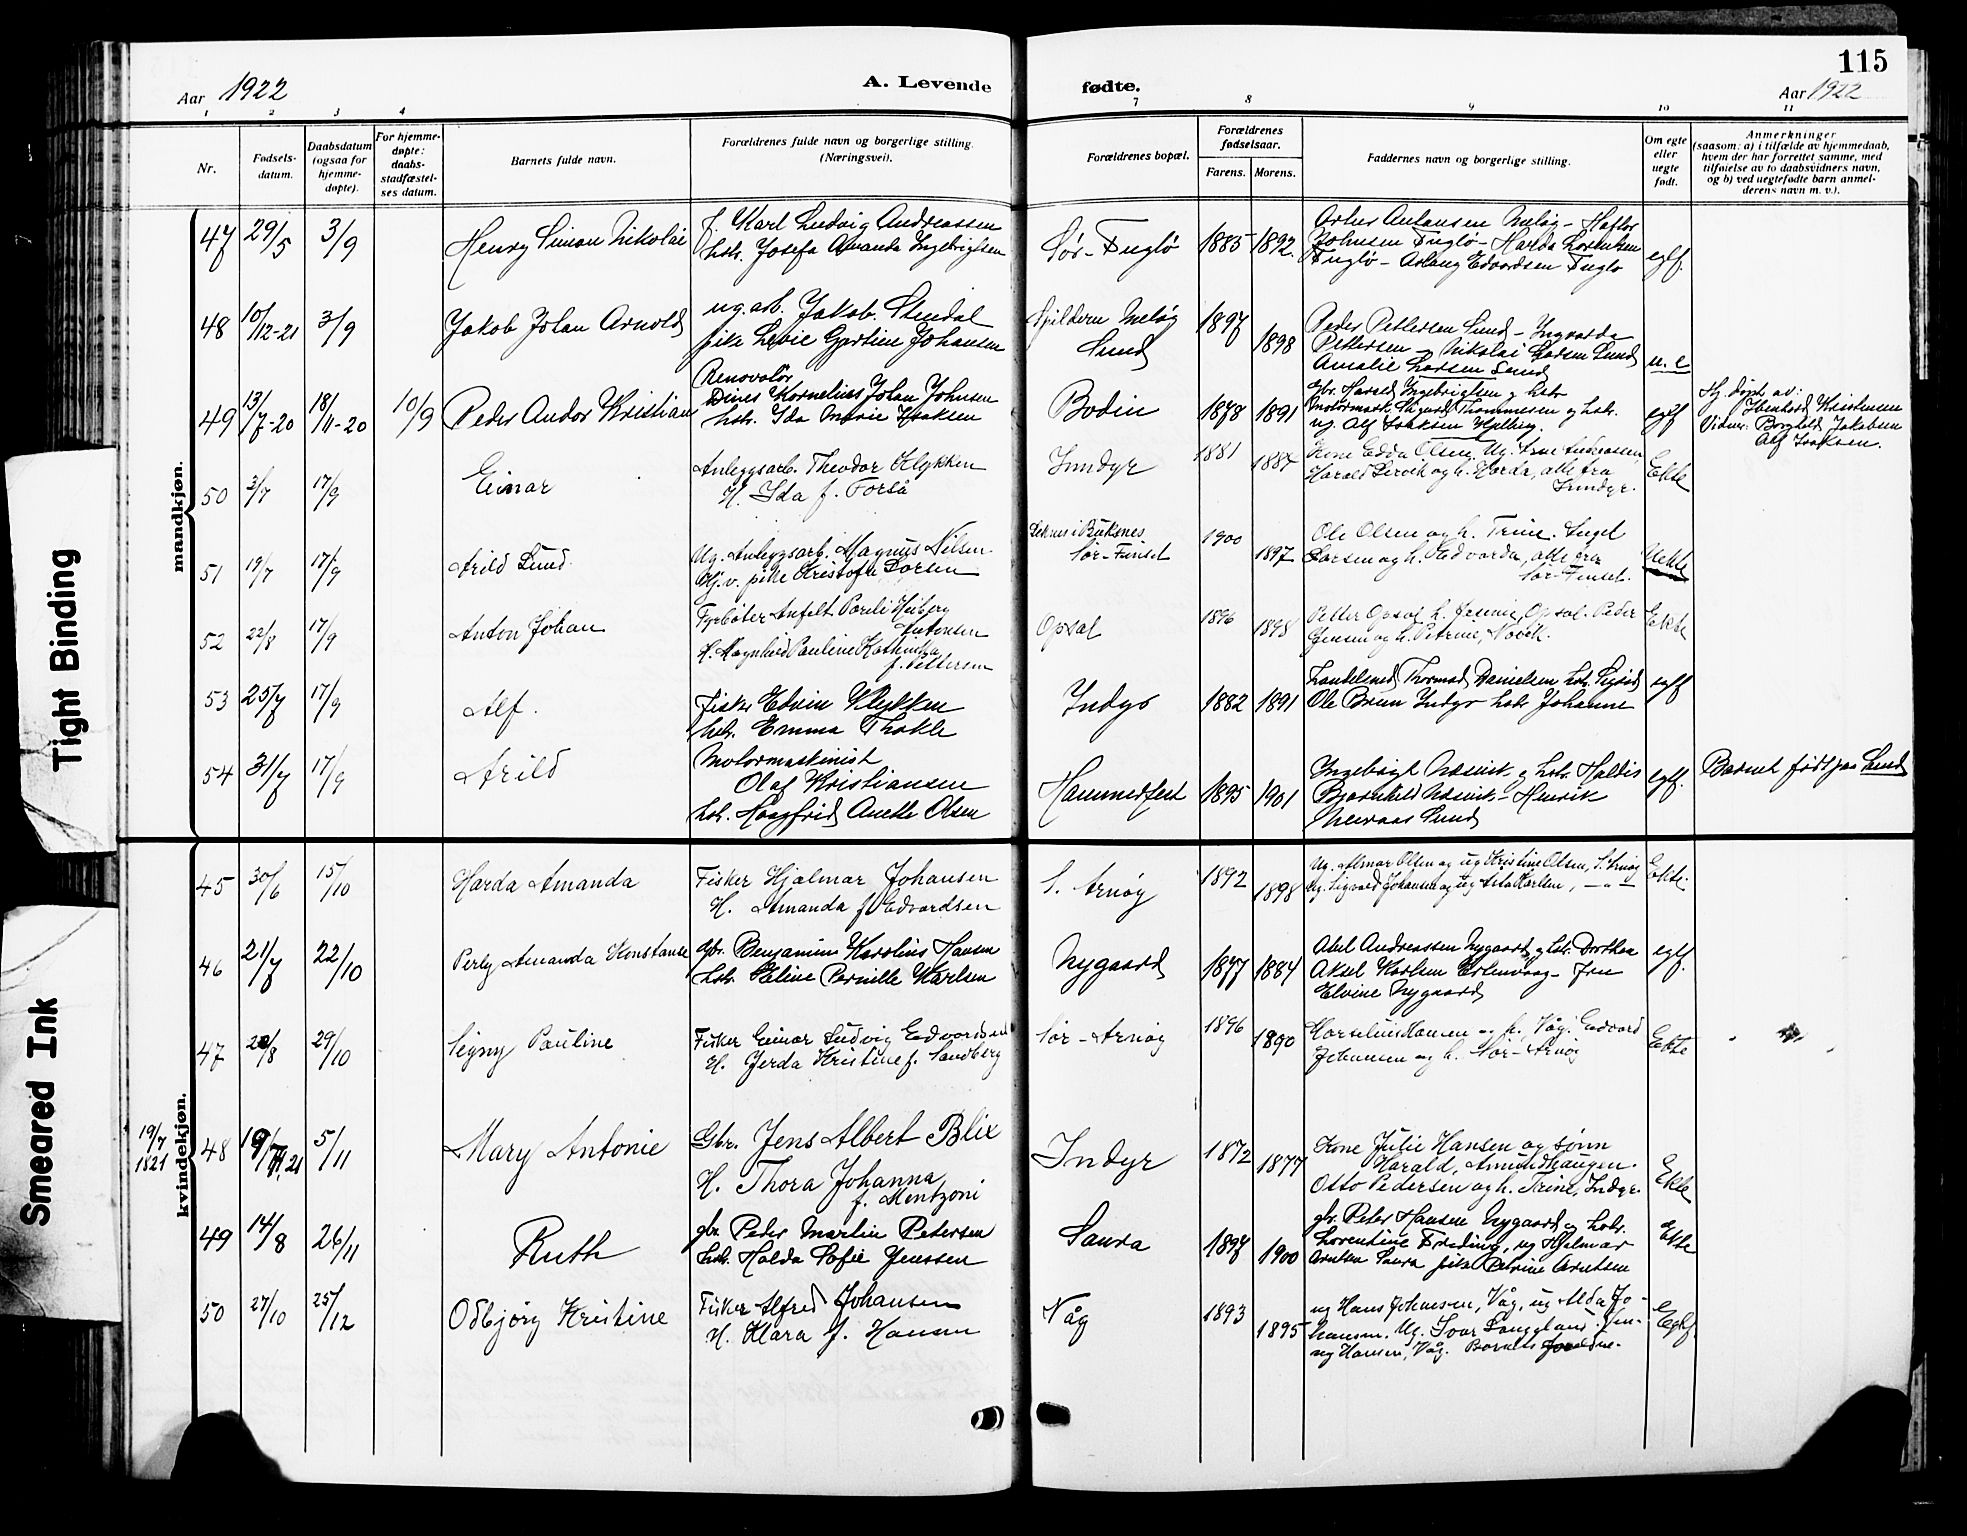 115
Aar 1922
A. Levende
fødte.
Aar 1922
1 2 3 4 7 8 9 10 11
Nr.
Fødsels-
datum.
Daabsdatum
(ogsaa for
hjemme-
døpte).
For hjemme-
døpte:
daabs-
stadfæstel-
ses datum.
Barnets fulde navn.
Forældrenes fulde navn og borgerlige stilling.
(Næringsvei).
Forældrenes bopæl.
Forældrenes
fødselsaar.
Farens. Morens.
Faddernes navn og borgerlige stilling.
Om egte
eller
uegte
født.
Anmerkninger
(saasom: a) i tilfælde av hjemmedaab,
hvem der har forrettet samme, med
tilføielse av to daabsvidners navn,
og b) ved uegtefødte barn anmel-
derens navn m. v.).
mandkjøn.
47 29/5 3/9 Henry Simon Nikolai
f. Karl Ludvig Andreassen
hstr. Josefa Amanda Ingebrigtsen
Sør-Fuglø 1885 1892.
Johnsen Fuglø - Harda Lorentzen
Fuglø - Aslaug Edvardsen Fuglø
egtf.
48 10/12-21 3/9 Jakob Johan Arnold
ug. arb. Jakob Stendal
pike Levie Gjertine Johansen
Spildern Meløy
Sund
1897 1898
Peder Pettersen Sund - Ingvarda
Pettersen - Nikolai Larsen Sund
Amalie Larsen Sund
u. e
49 13/7-20 18/11-20 10/9 Peder Andor Kristian
Renovatør
Dines Kornelius Johan Johnsen
hstr. Ida Marie Isaksen
Bodin 1878 1891
gbr. Harald Ingebrigtsen og hstr
Motormask. Sigurd Thommesen og hstr.
ug. Alf Isaksen
egtf
Hj. døpt av:
Kristensen
Vidner: Borghild Jakobsen
Alf Isaksen.
50 2/7 17/9 Einar
Anleggsarb. Theodor Klykken
H. Ida f. Forså
Inndyr 1881 1887
Kone Edda Olsen, Ug. Arne Andreassen,
Harald Lervik og h. Harda, alle fra
Inndyr.
Ekte
51 19/7 17/9 Arild Lund
Ug. Anleggsarb. Magnus Nilsen
Gj. v. pike Kristofa Larsen
Leknes i Buksnes
Sør-Finset
1900 1897
Ole Olsen og h. Trine. Engel
Larsen og h. Edvarda, alle fra
Sør-Finset.
Uekte
52 22/8 17/9 Anton Johan
Fyrbøter Anfelt Pareli Heiberg
Antonsen
H. Magnhild Pauline Kathinka
f. Pettersen
Opsal 1896 1898
Petter Opsal, h. Jensine, Opsal. Peder
Jensen og h. Petrine,
Ekte
53 25/7 17/9 Alf.
Fisker Edvin Klykken
hstr. Emma Thakle
Indyr 1882 1891
Landhandl. Thormod Danielsen hstr. Sigrid
Ole Brun Indyr hstr Johanne
egtf
54 31/7 17/9 Arild
Motormaskinist
Olaf Kristiansen
hstr. Haagfrid Anette Olsen
Hammerfest 1895 1901
Ingebrigt Næsvik og hstr. Haldis
Bjarnhild Næsvik - Henrik
Sund
egtf.
Barnet født paa Sund
kvindekjøn.
45 30/6 15/10 Harda Amanda
Fisker Hjalmar Johansen
H. Amanda f. Edvardsen
S. Arnøy 1892 1898
Ug. Almar Olsen og ug Kristine Olsen, S. Arnøy
Ug. Sigvard Johansen og ug Asta Karlsen, — „ —
Ekte.
46 21/7 22/10 Perly Amanda Konstanse
gbr. Benjamin Karolius Hansen
hstr. Eline Pernille Karlsen
Nygaard 1877 1884
Abel Andreassen Nygaard og hstr. Dorthea
Aksel Karlsen Eslenvaag - Fru
Elvine Nygaard
egtf.
47 28/8 29/10 Signy Pauline
Fisker Einar Ludvig Edvardsen
H. Gerda Kristine f. Sandberg
Sør-Arnøy 1896 1890
Marselius Hansen og h. Våg. Edvard
Johansen og h. Sør-Arnøy
Ekte
19/7
1821
48 19/7 21 5/11 Mary Antonie
Gbr. Jens Albert Blix
H. Thora Johanna
f. Mentzoni
Indyr 1872 1877
Kone Julie Hansen og sønn
Harald, Amundhaugen.
Otto Pedersen og h. Trine, Indyr.
Ekte
49 14/8 26/11 Ruth
gbr. Peder Martin Petersen
hstr. Halda Sofie Jenssen
Saura 1897 1900
gbr. Peter Hansen Nygaard og hstr.
Lorentine Freding, ug Hjelmar
Arntsen Saura pike Petrine Arntsen
Ekte
50 27/10 25/12 Odbjørg Kristine
Fisker Alfred Johansen
H. Klara f. Hansen
Våg 1893 1895
ug Hans Johansen, Våg, ug Alda Jo-
hansen, Ug. Ivar Langeland. Jen-
ny Hansen, Våg. Barnets foreldre.
Egtf.
Tight Binding
Smeared Ink